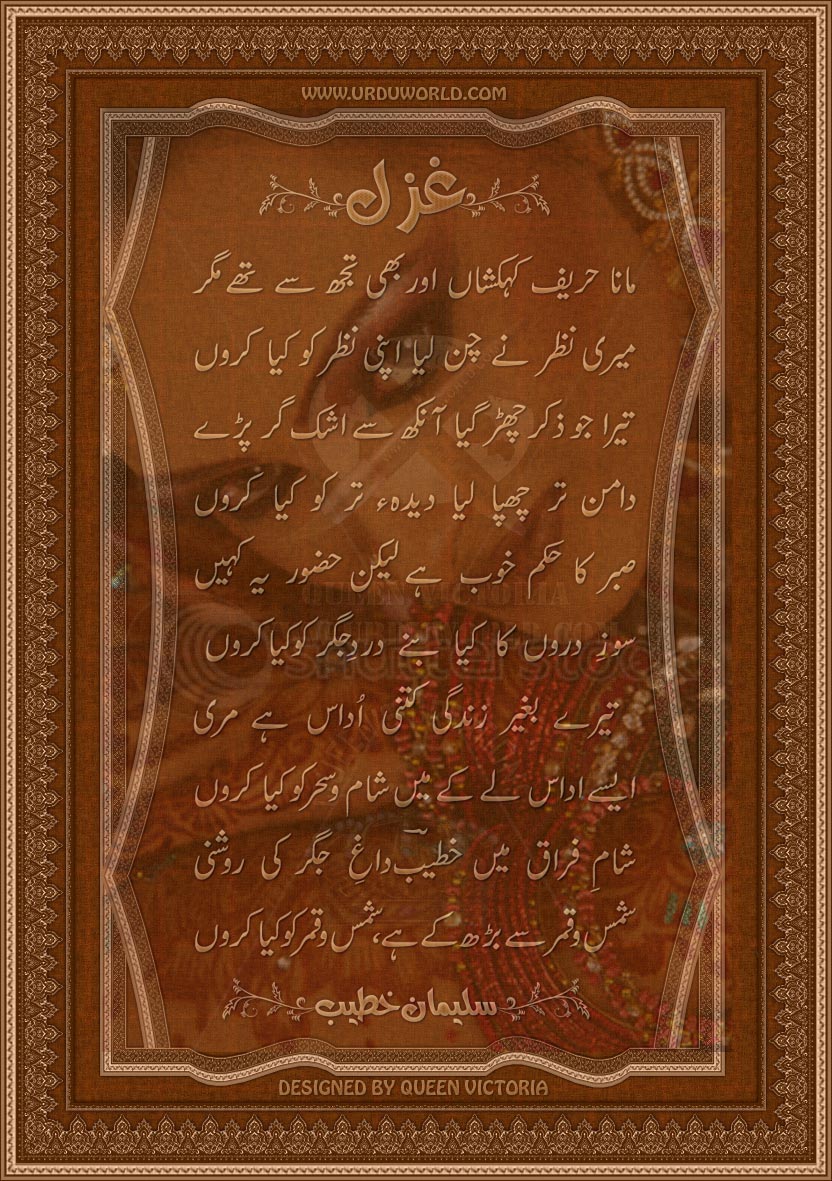 WWW.URDUWORLD.COM
غزل
مانا حریف کہکشاں اور بھی تجھ سے تھے مگر
میری نظر نے چن لیا اپنی نظر کو کیا کروں
تیرا جو ذکر چھڑ گیا آنکھ سے اشک گر پڑے
دامن تر چھپا لیا دیدہء تر کو کیا کروں
صبر کا حکم خوب ہے لیکن حضور یہ کہیں
QUEEN VICTORIA
سوزِ دروں کا کیا بنے دردِ جگر کو کیا کروں
shutterstock
تیرے بغیر زندگی کتنی اُداس ہے مری
ایسے اداس لے کے میں شام و سحر کو کیا کروں
شامِ فراق میں خطیب داغِ جگر کی روشنی
شمس و قمر سے بڑھ کے ہے، شمس و قمر کو کیا کروں
سلیمان خطیب
DESIGNED BY QUEEN VICTORIA